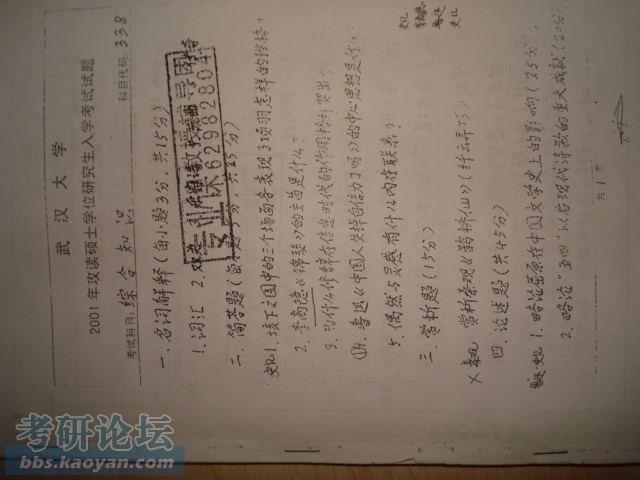 武汉大学
2001年攻读硕士学位研究生入学考试试题
考试科目: 综合知识 科目代码: 338
一. 名词解释(每小题3分, 共15分)
1. 词汇 2.
二. 简答题(
史记 1. 垓下之围中的三个场面各表现了项羽怎样的性格?
2. 李商隐《锦瑟》的主旨是什么?
3. 为什么修辞在信息时代的作用格外突出?
4. 鲁迅《中国人失掉自信力了吗》的中心思想是什么?
5. 偶然与灵感有什么内在联系?
三. 赏析题(15分)
赏析秦观《鹊桥仙》(纤云弄巧)
四. 论述题(共45分)
1. 略论屈原在中国文学史上的影响(25分).
2. 略论"五四"以后现代诗歌的重大成就(20分).
共 1 页
专业课
62982804
考研论坛
bbs.kaoyan.com